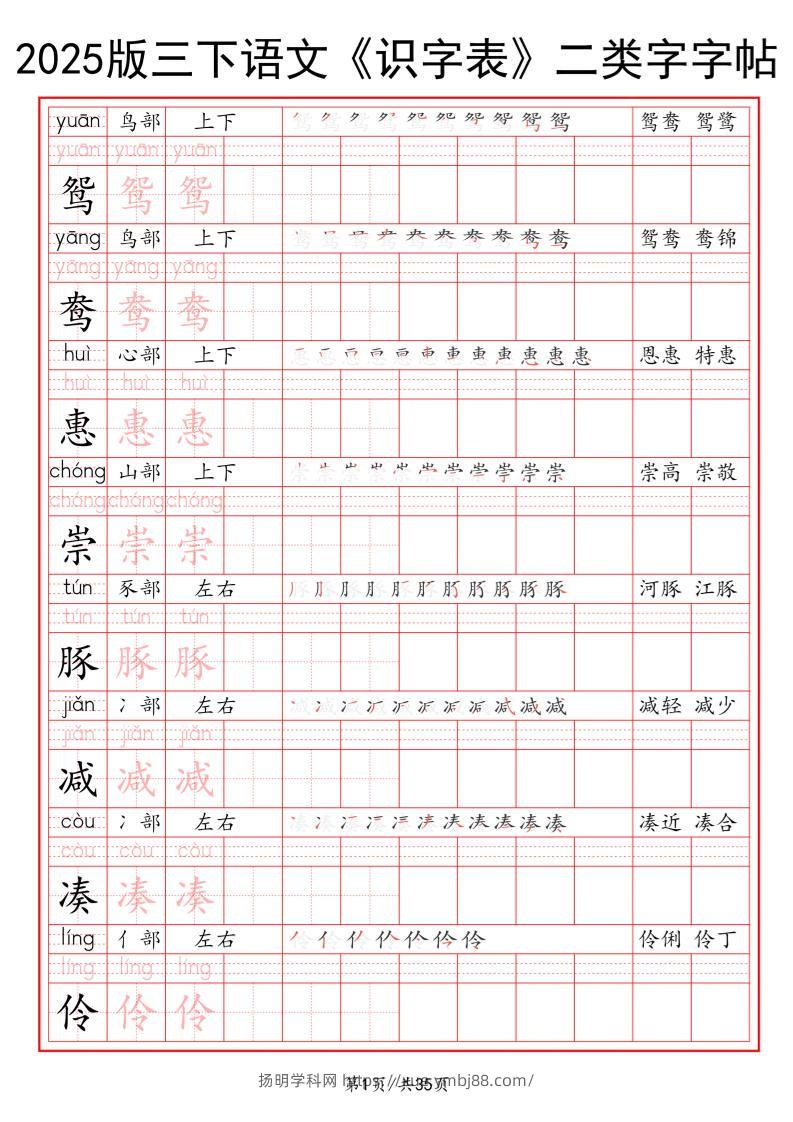 2025版三下语文《识字表》二类字字帖
yuān 鸟部 上下 鸳鸯 鸳鹭
yuān yuān yuān
鸳 鸳 鸳
yāng 鸟部 上下 鸳鸯 鸯锦
yāng yāng yāng
鸯 鸯 鸯
huì 心部 上下 恩惠 特惠
huì huì huì
惠 惠 惠
chóng 山部 上下 崇高 崇敬
chóng chóng chóng
崇 崇 崇
tún 豕部 左右 河豚 江豚
tún tún tún
豚 豚 豚
jiǎn 冫部 左右 减轻 减少
jiǎn jiǎn jiǎn
减 减 减
còu 冫部 左右 凑近 凑合
còu còu còu
凑 凑 凑
líng 亻部 左右 伶俐 伶丁
líng líng líng
伶 伶 伶
扬明学科网 https://xue.ymbj88.com/
第1页/共35页